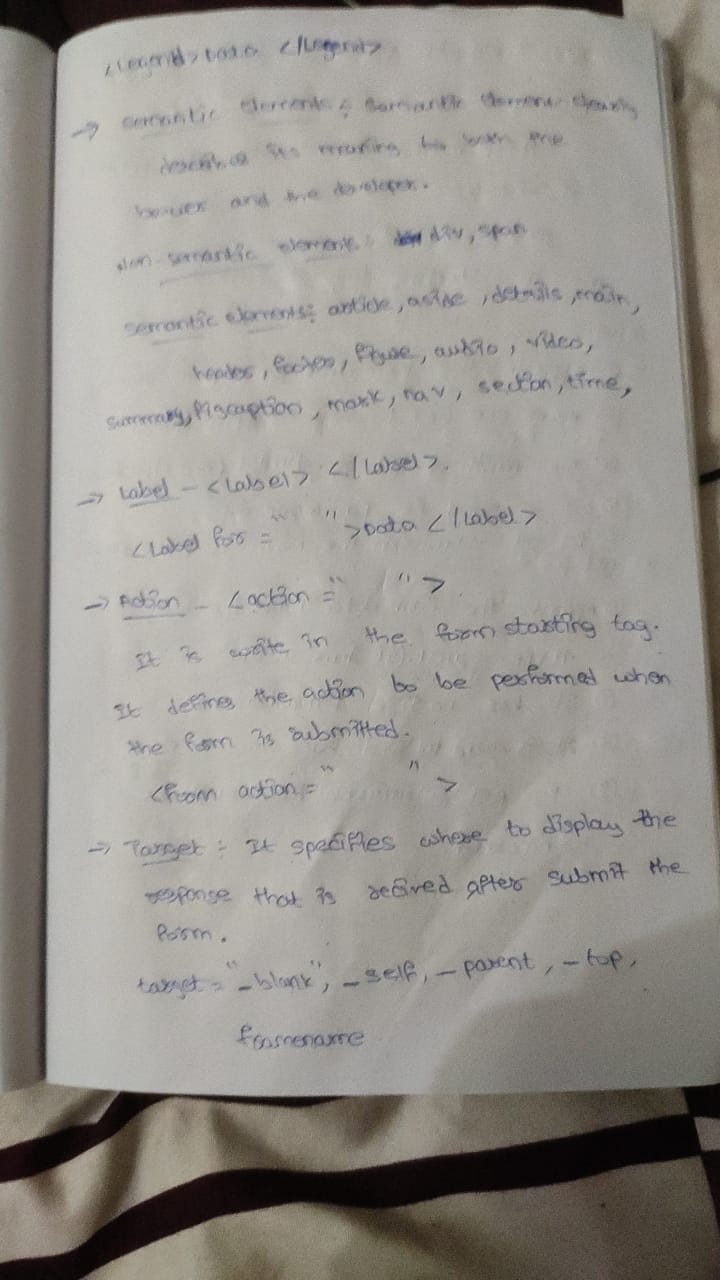 <legend> Data </legend>
→ semantic elements : semantic element clearly
describe its meaning to both the
browser and the developer.
Non-semantic elements : div, span
semantic elements: article, aside, details, main,
header, footer, figure, audio, video,
summary, figcaption, mark, nav, section, time,
→ Label - <Label> </Label>.
<Label for = " ">Data </Label>
→ Action - <action = " ">
It is write in the form starting tag.
It defines the action to be performed when
the form is submitted.
<form action = " ">
→ Target : It specifies where to display the
response that is recived after submit the
form.
target = "_blank", _self, _parent, _top,
framename